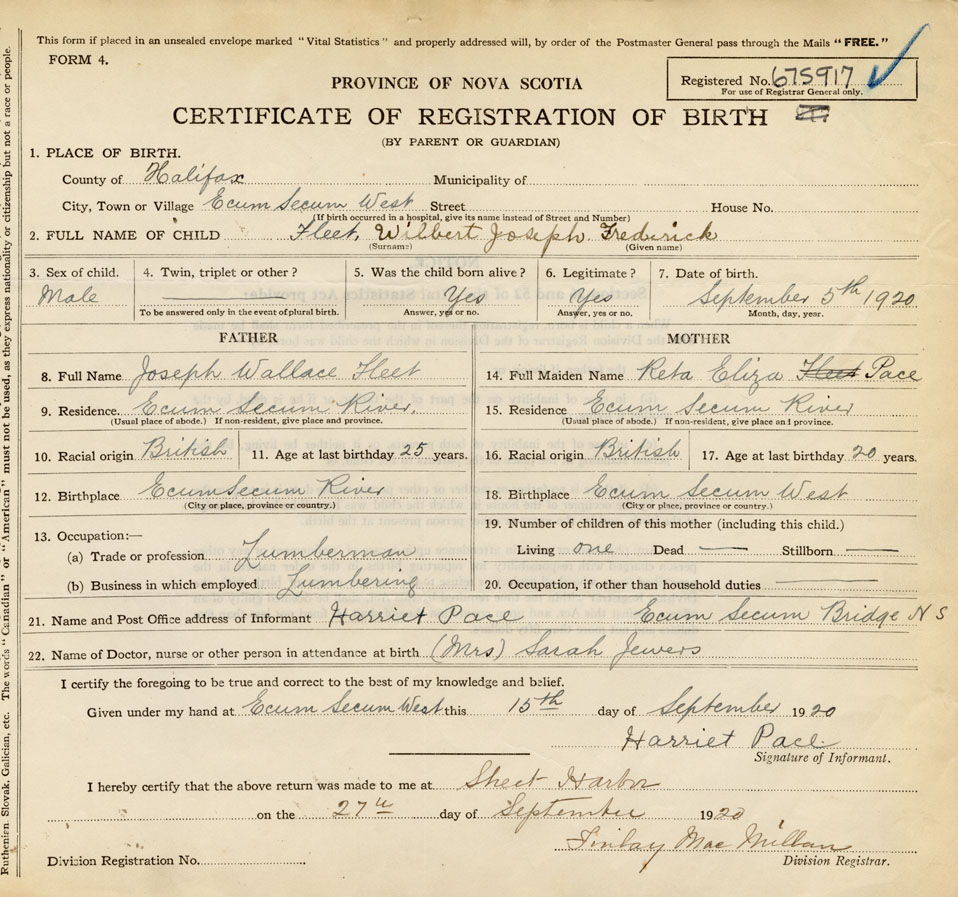 This form if placed in an unsealed envelope marked "Vital Statistics" and properly addressed will, by order of the Postmaster General pass through the Mails "FREE."
FORM 4.
Registered No. 675917
For use of Registrar General only.
PROVINCE OF NOVA SCOTIA
CERTIFICATE OF REGISTRATION OF BIRTH
(BY PARENT OR GUARDIAN)
1. PLACE OF BIRTH.
County of Halifax Municipality of
City, Town or Village Ecum Secum West Street House No.
(If birth occurred in a hospital, give its name instead of Street and Number)
2. FULL NAME OF CHILD Fleet, Wilbert Joseph Frederick
(Surname) (Given name)
3. Sex of child. 4. Twin, triplet or other? 5. Was the child born alive? 6. Legitimate? 7. Date of birth.
Male Yes Yes September 5th 1920
To be answered only in the event of plural birth. Answer, yes or no. Answer, yes or no. Month, day, year.
FATHER MOTHER
8. Full Name Joseph Wallace Fleet 14. Full Maiden Name Reta Eliza Fleet Pace
9. Residence. Ecum Secum River. 15. Residence Ecum Secum River
(Usual place of abode.) If non-resident, give place and province. (Usual place of abode.) If non-resident, give place and province.
10. Racial origin British 11. Age at last birthday 25 years. 16. Racial origin British 17. Age at last birthday 20 years.
12. Birthplace Ecum Secum River 18. Birthplace Ecum Secum West
(City or place, province or country.) (City or place, province or country.)
13. Occupation:— 19. Number of children of this mother (including this child.)
(a) Trade or profession Lumberman Living one Dead — Stillborn —
(b) Business in which employed Lumbering 20. Occupation, if other than household duties —
21. Name and Post Office address of Informant Harriet Pace Ecum Secum Bridge N S
22. Name of Doctor, nurse or other person in attendance at birth (Mrs) Sarah Jewers
I certify the foregoing to be true and correct to the best of my knowledge and belief.
Given under my hand at Ecum Secum West this 15th day of September 1920
Harriet Pace
Signature of Informant.
I hereby certify that the above return was made to me at Sheet Harbor
on the 27th day of September 1920
Finlay Mac Millan
Division Registration No. Division Registrar.
Ruthenien, Slovak, Galician, etc. The words "Canadian" or "American" must not be used, as they express nationality or citizenship but not a race or people.